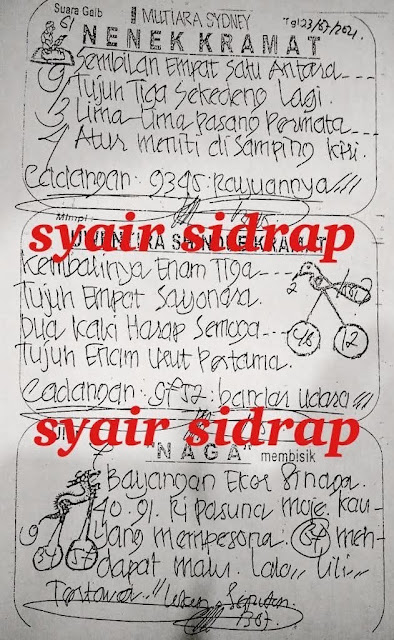 Suara Gaib
MUTIARA SYDNEY
Tgl 23/07/2021
NENEK KRAMAT
Sembilan Empat Satu Antara
Tujuh Tiga Sekedeng Lagi.
Lima-Lima Pasang Permata
Atur meniti di Samping Kiri.
Cadangan: 9345: Rayuannya
Mimpi
syair sidrap
KRAMAT
Kembalinya Enam Tiga
Tujuh Empat Sayonara.
Dua Kaki Harap Semoga
Tujuh Enam Urut Pertama.
Cadangan: bandar udara
syair sidrap
"NAGA" membisik
Bayangan Ekor Si naga.
40.91. Ki Pasuna maje. Kau
Yang mempesona. 64 men-
dapat malu. Lala,, Lili